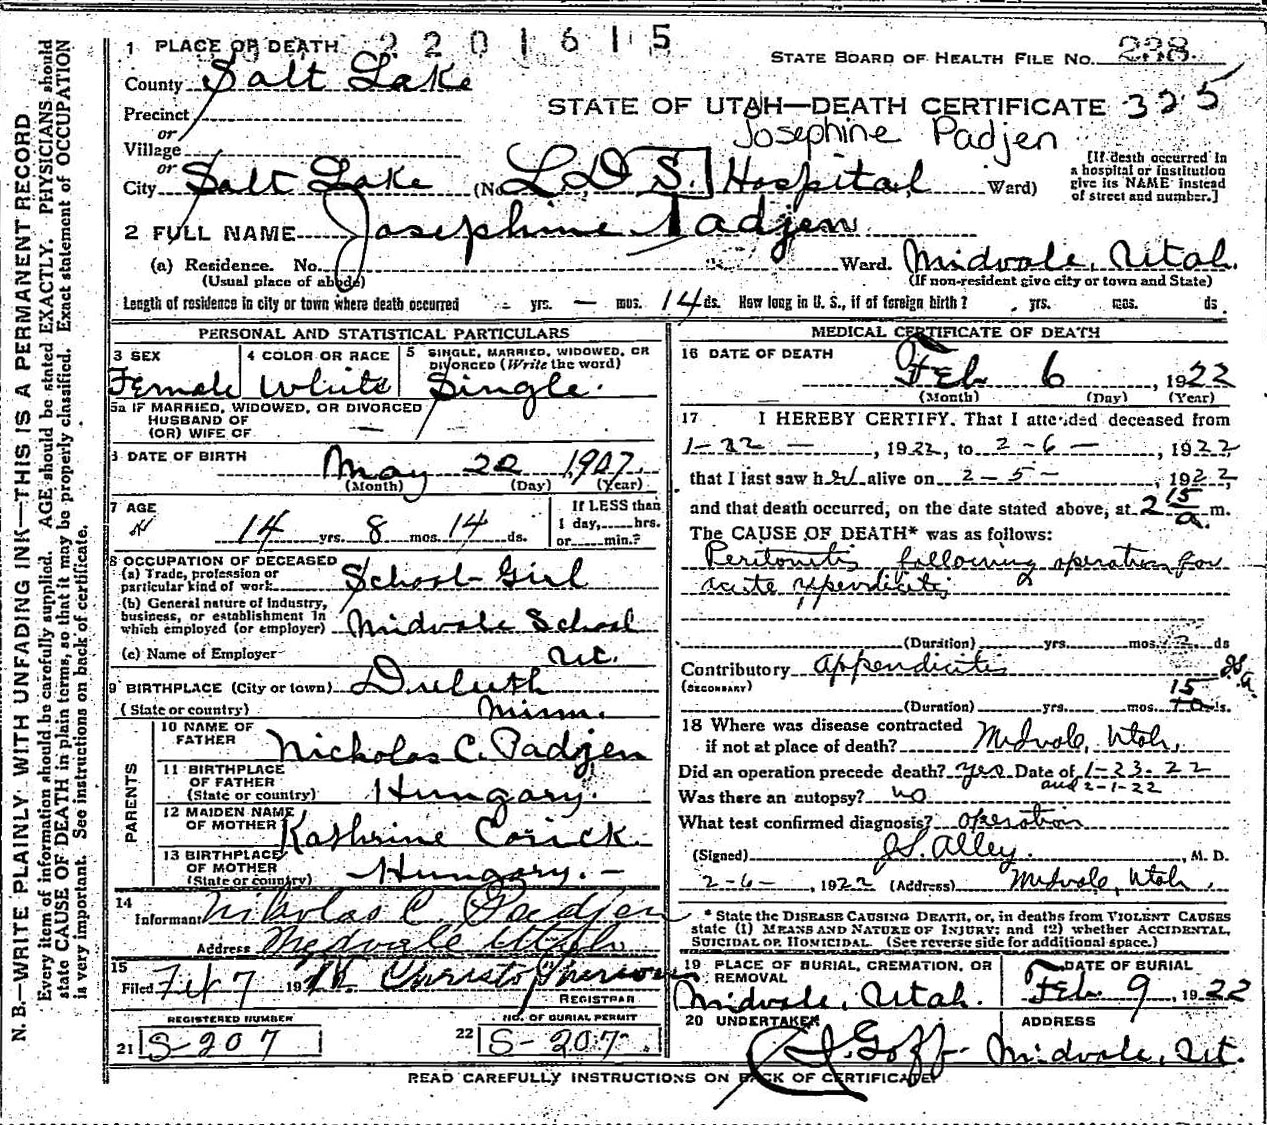 N. B.—WRITE PLAINLY WITH UNFADING INK—THIS IS A PERMANENT RECORD
Every item of information should be carefully supplied. AGE should be stated EXACTLY. PHYSICIANS should
state CAUSE OF DEATH in plain terms, so that it may be properly classified. Exact statement of OCCUPATION
is very important. See instructions on back of certificate.
1 PLACE OF DEATH 2201615
STATE BOARD OF HEALTH FILE NO. 238
County Salt Lake
STATE OF UTAH—DEATH CERTIFICATE 325
Precinct
Josephine Padjen
or
Village
or
City Salt Lake (No. L.D.S. Hospital, Ward)
[If death occurred in
a hospital or institution
give its NAME instead
of street and number.]
2 FULL NAME Josephine Padjen
(a) Residence. No. Ward. Midvale, Utah.
(Usual place of abode) (If non-resident give city or town and State)
Length of residence in city or town where death occurred yrs. — mos. 14 ds. How long in U. S., if of foreign birth? yrs. mos. ds.
PERSONAL AND STATISTICAL PARTICULARS
3 SEX 4 COLOR OR RACE 5 SINGLE, MARRIED, WIDOWED, OR
DIVORCED (Write the word)
Female White Single.
5a IF MARRIED, WIDOWED, OR DIVORCED
HUSBAND OF
(OR) WIFE OF —
6 DATE OF BIRTH May 22 1907.
(Month) (Day) (Year)
7 AGE If LESS than
1 day, hrs.
14 yrs. 8 mos. 14 ds. or min.?
8 OCCUPATION OF DECEASED
(a) Trade, profession or
particular kind of work School Girl
(b) General nature of industry,
business, or establishment in
which employed (or employer) Midvale School
(c) Name of Employer Ut.
9 BIRTHPLACE (City or town) Duluth
(State or country) Minn.
PARENTS
10 NAME OF
FATHER Nickholas C. Padjen
11 BIRTHPLACE
OF FATHER
(State or country) Hungary.
12 MAIDEN NAME
OF MOTHER Kathrine Corick.
13 BIRTHPLACE
OF MOTHER
(State or country) Hungary. —
14
Informant Nikholas C. Padjen
Address Midvale Utah
15
Filed Feb 7 192 Christopherson
REGISTRAR
REGISTERED NUMBER NO. OF BURIAL PERMIT
21 S-207 22 S-207.
MEDICAL CERTIFICATE OF DEATH
16 DATE OF DEATH
Feb 6, 1922
(Month) (Day) (Year)
17 I HEREBY CERTIFY. That I attended deceased from
1-22 —, 1922, to 2-6 —, 1922
that I last saw her alive on 2-5 —, 1922,
and that death occurred, on the date stated above, at 2 15 a. m.
The CAUSE OF DEATH* was as follows:
Peritonitis following operation for
acute appendicitis
(Duration) yrs. mos. ds
Contributory appendicitis J.S.A.
(SECONDARY) 15
(Duration) yrs. mos. ds.
18 Where was disease contracted
if not at place of death? Midvale, Utah.
Did an operation precede death? yes Date of 1-23-22
and 2-1-22
Was there an autopsy? no
What test confirmed diagnosis? operation
(Signed) J.S. Alley., M. D.
2-6-, 1922 (Address) Midvale, Utah.
* State the DISEASE CAUSING DEATH, or, in deaths from VIOLENT CAUSES
state (1) MEANS AND NATURE OF INJURY; and (2) whether ACCIDENTAL,
SUICIDAL OR HOMICIDAL. (See reverse side for additional space.)
19 PLACE OF BURIAL, CREMATION, OR
REMOVAL DATE OF BURIAL
Midvale, Utah. Feb. 9, 1922
20 UNDERTAKER ADDRESS
Goff Midvale, Ut.
READ CAREFULLY INSTRUCTIONS ON BACK OF CERTIFICATE